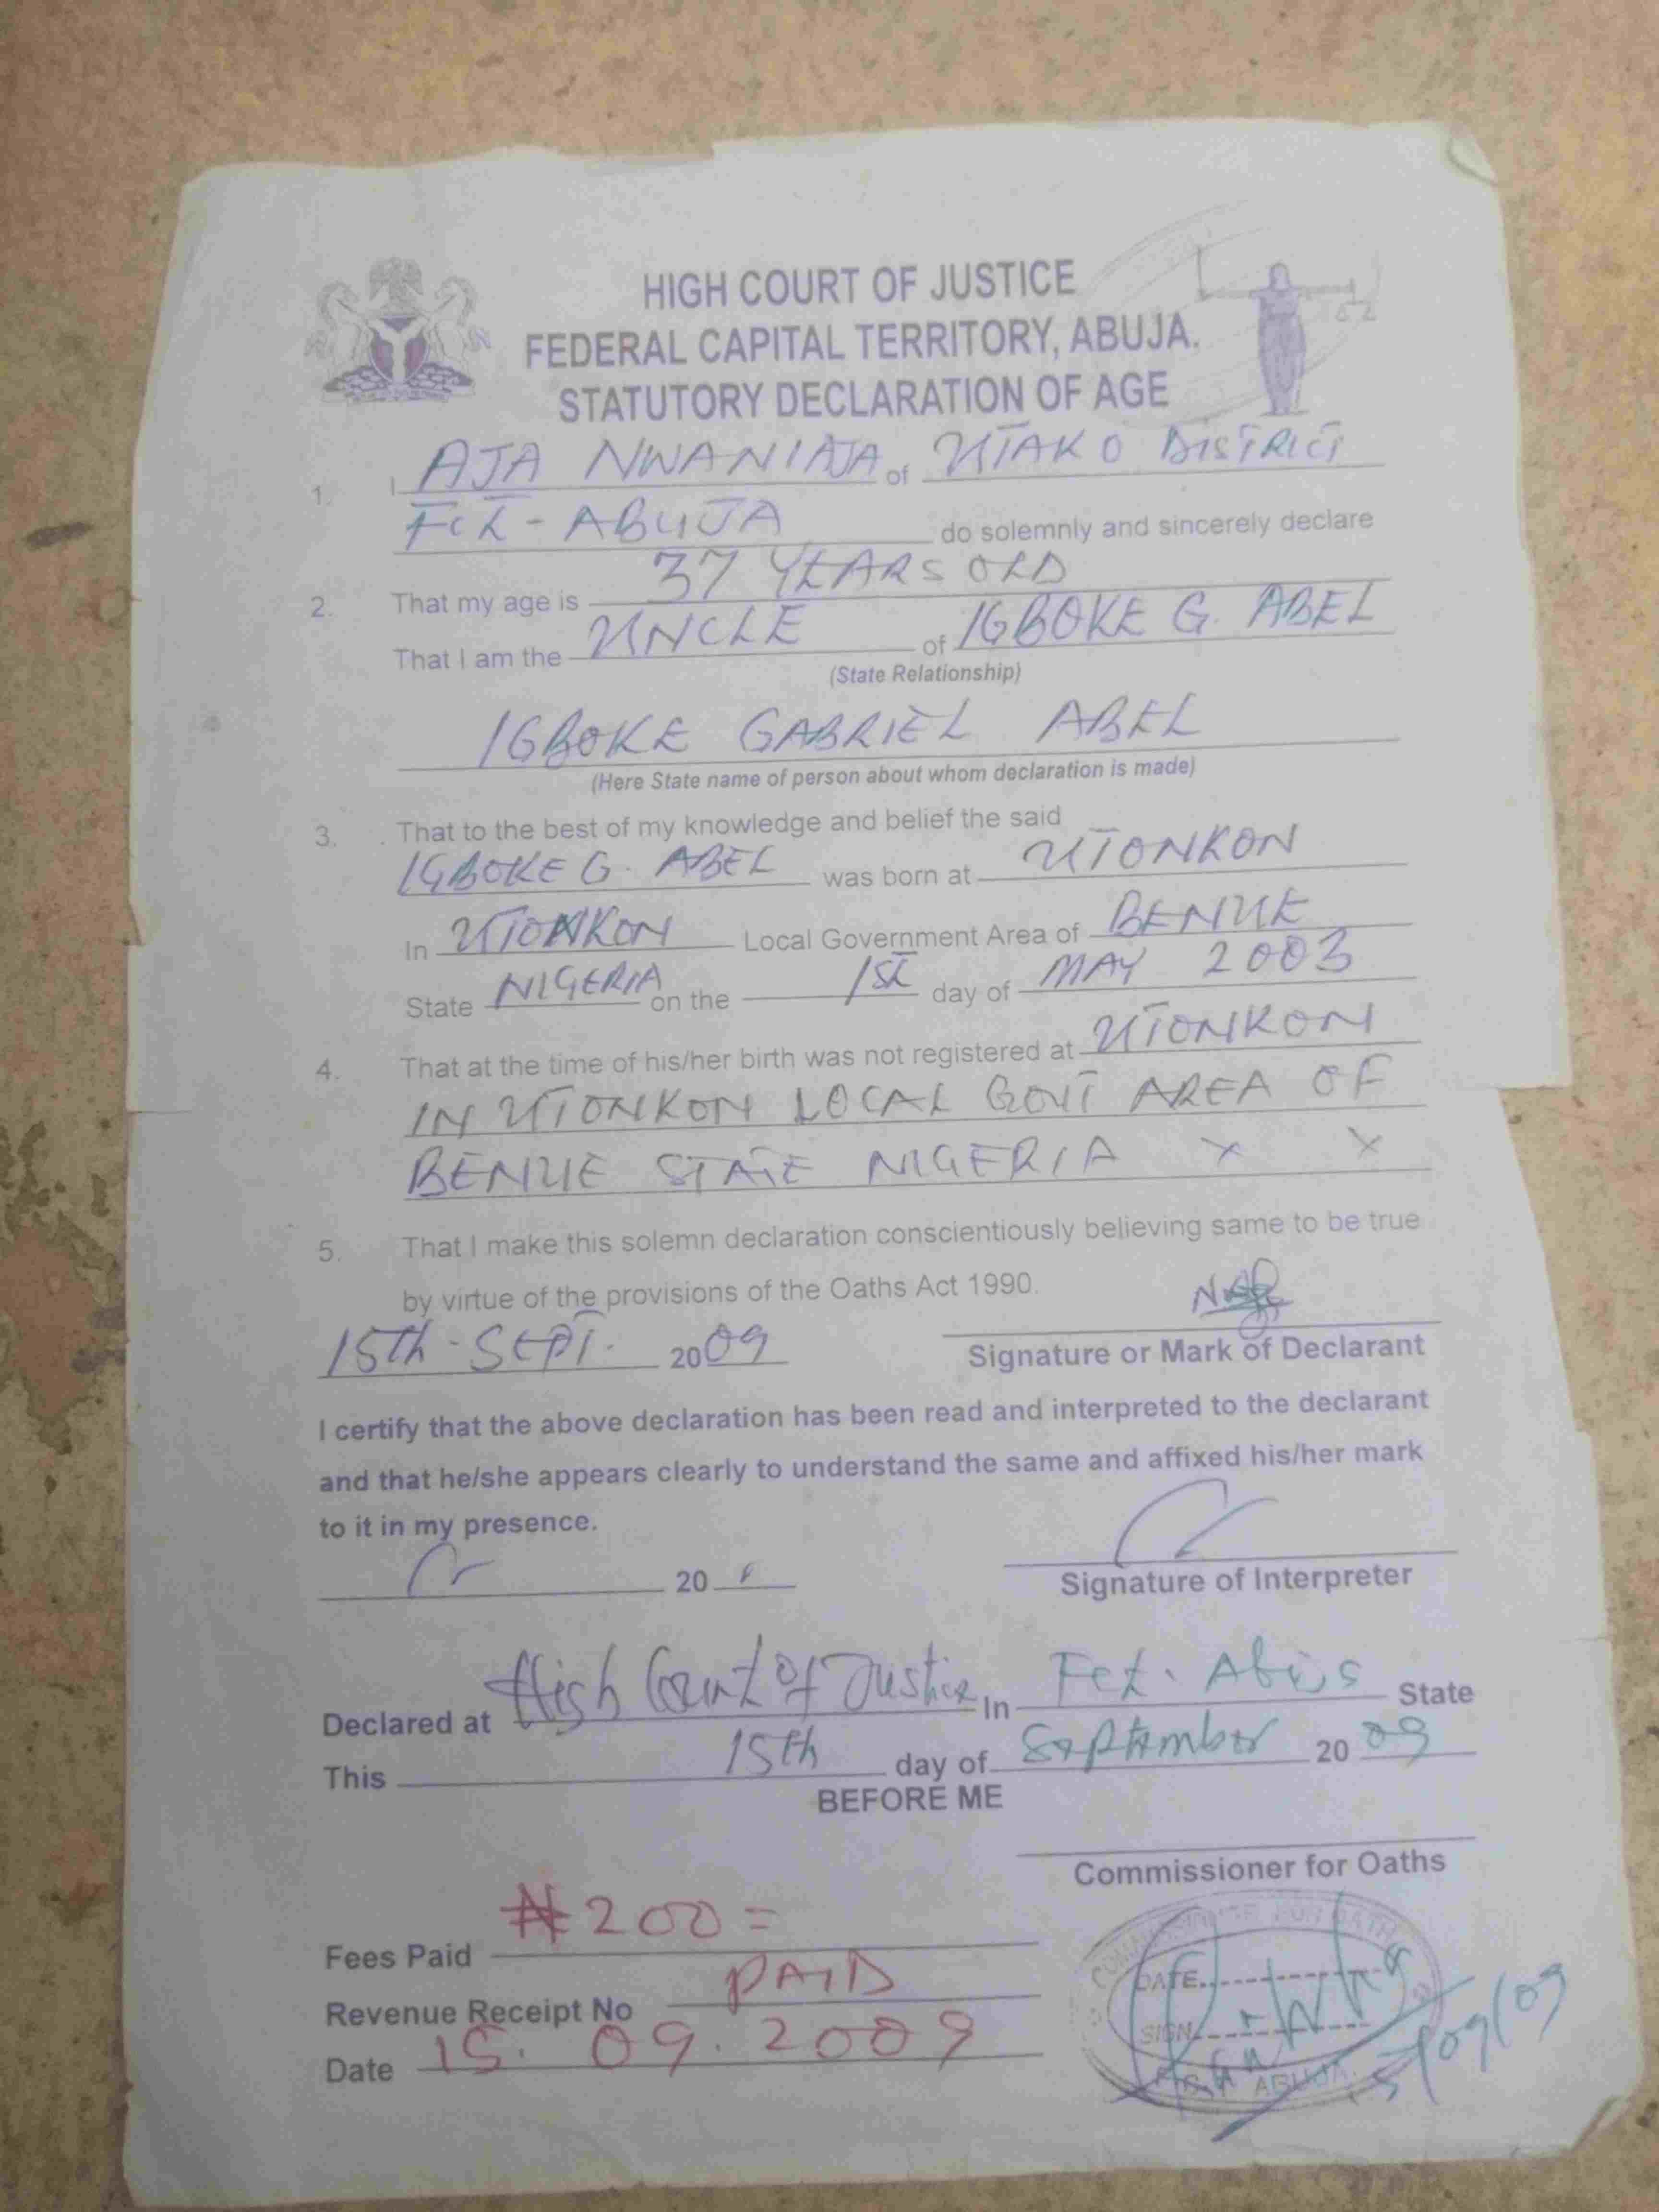 HIGH COURT OF JUSTICE
FEDERAL CAPITAL TERRITORY, ABUJA.
STATUTORY DECLARATION OF AGE
1. I AJA NWANIAJA of UTAKO DISTRICT
FCT - ABUJA do solemnly and sincerely declare
2. That my age is 37 YEARS OLD
That I am the UNCLE of IGBOKE G. ABEL
(State Relationship)
IGBOKE GABRIEL ABEL
(Here State name of person about whom declaration is made)
3. That to the best of my knowledge and belief the said
IGBOKE G. ABEL was born at UTONKON
In UTONKON Local Government Area of BENUE
State NIGERIA on the 1ST day of MAY 2003
4. That at the time of his/her birth was not registered at UTONKON
IN UTONKON LOCAL GOVT AREA OF
BENUE STATE NIGERIA X X
5. That I make this solemn declaration conscientiously believing same to be true
by virtue of the provisions of the Oaths Act 1990.
15th - SEPT. 2009
Signature or Mark of Declarant
I certify that the above declaration has been read and interpreted to the declarant
and that he/she appears clearly to understand the same and affixed his/her mark
to it in my presence.
20
Signature of Interpreter
Declared at High Court Of Justice In Fct. Abuja State
This 15th day of September 20 09
BEFORE ME
Commissioner for Oaths
Fees Paid ₦200=
Revenue Receipt No PAID
Date 15. 09. 2009
COMMISSIONER FOR OATHS
DATE
SIGN
ABUJA